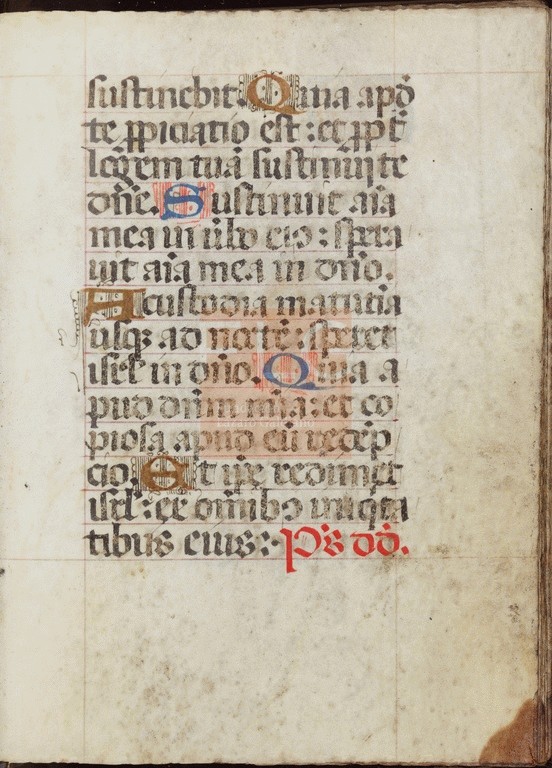 sustinebit. Quia apd̄
te ꝓpiciatio est : et ꝓpt̄
legem tuā sustinui te
dn̄e. Sustinuit aīa
mea in ūbo eiꝰ : spera
uit aīa mea in dn̄o.
A custodia matutīa
usqꝫ ad noctē : speret
isrl̄ in dn̄o. Quia a
pud dn̄m mīa : et co
piosa apud eū redēp
cio. Et ip̄e redimet
isrl̄ : ex om̄ibꝰ iniq̄ta
tibus eius : Pˢ dd̄.